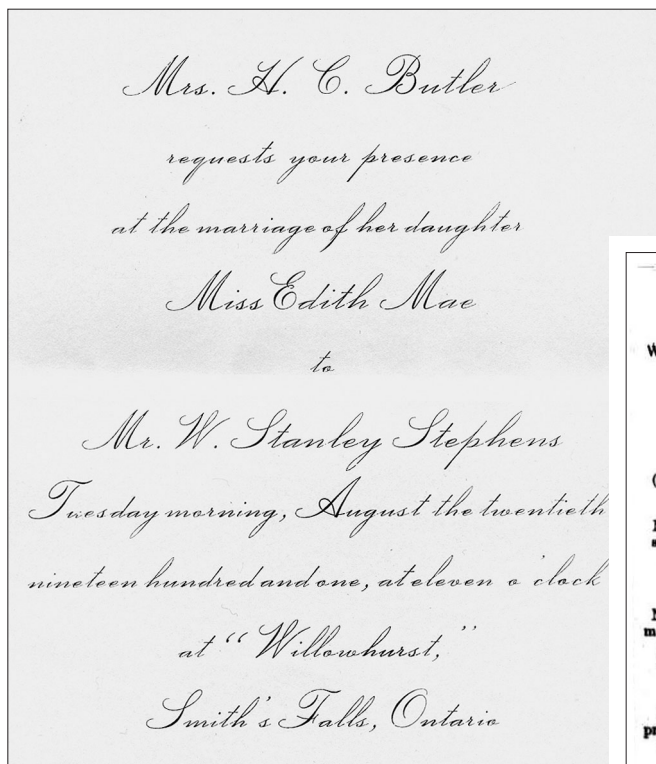 Mrs. H. C. Butler
requests your presence
at the marriage of her daughter
Miss Edith Mae
to
Mr. W. Stanley Stephens
Tuesday morning, August the twentieth
nineteen hundred and one, at eleven o'clock
at "Willowhurst,"
Smith's Falls, Ontario